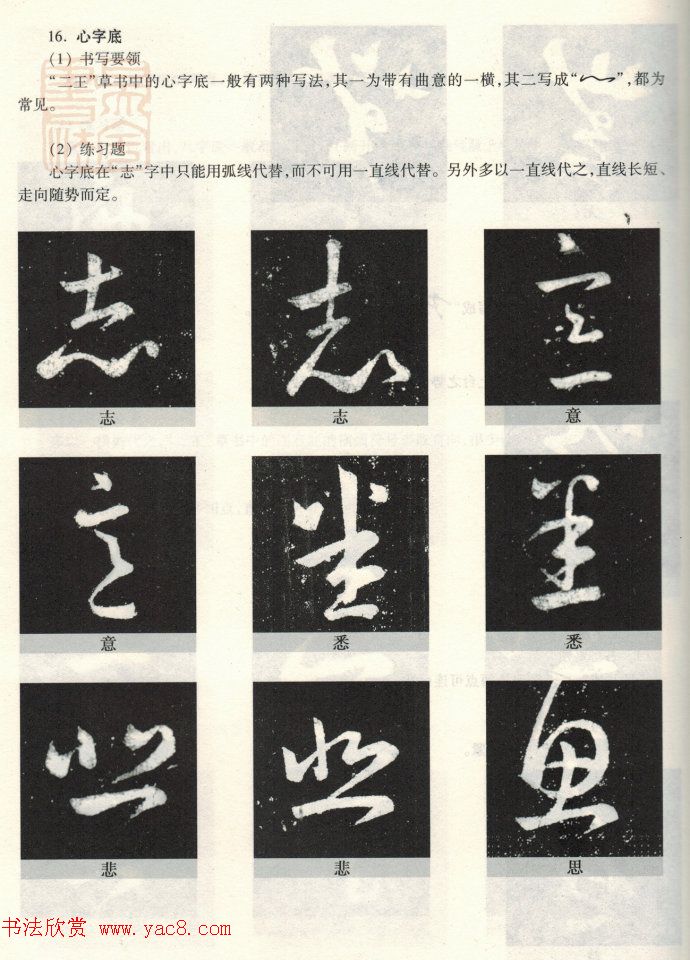 16. 心字底
(1) 书写要领
“二王”草书中的心字底一般有两种写法,其一为带有曲意的一横,其二写成“ ”,都为
常见。
(2) 练习题
心字底在“志”字中只能用弧线代替,而不可用一直线代替。另外多以一直线代之,直线长短、
走向随势而定。
志 志 意
志 志 意
意 悉 悉
意 悉 悉
悲 悲 思
悲 悲 思
书法欣赏 www.yac8.com